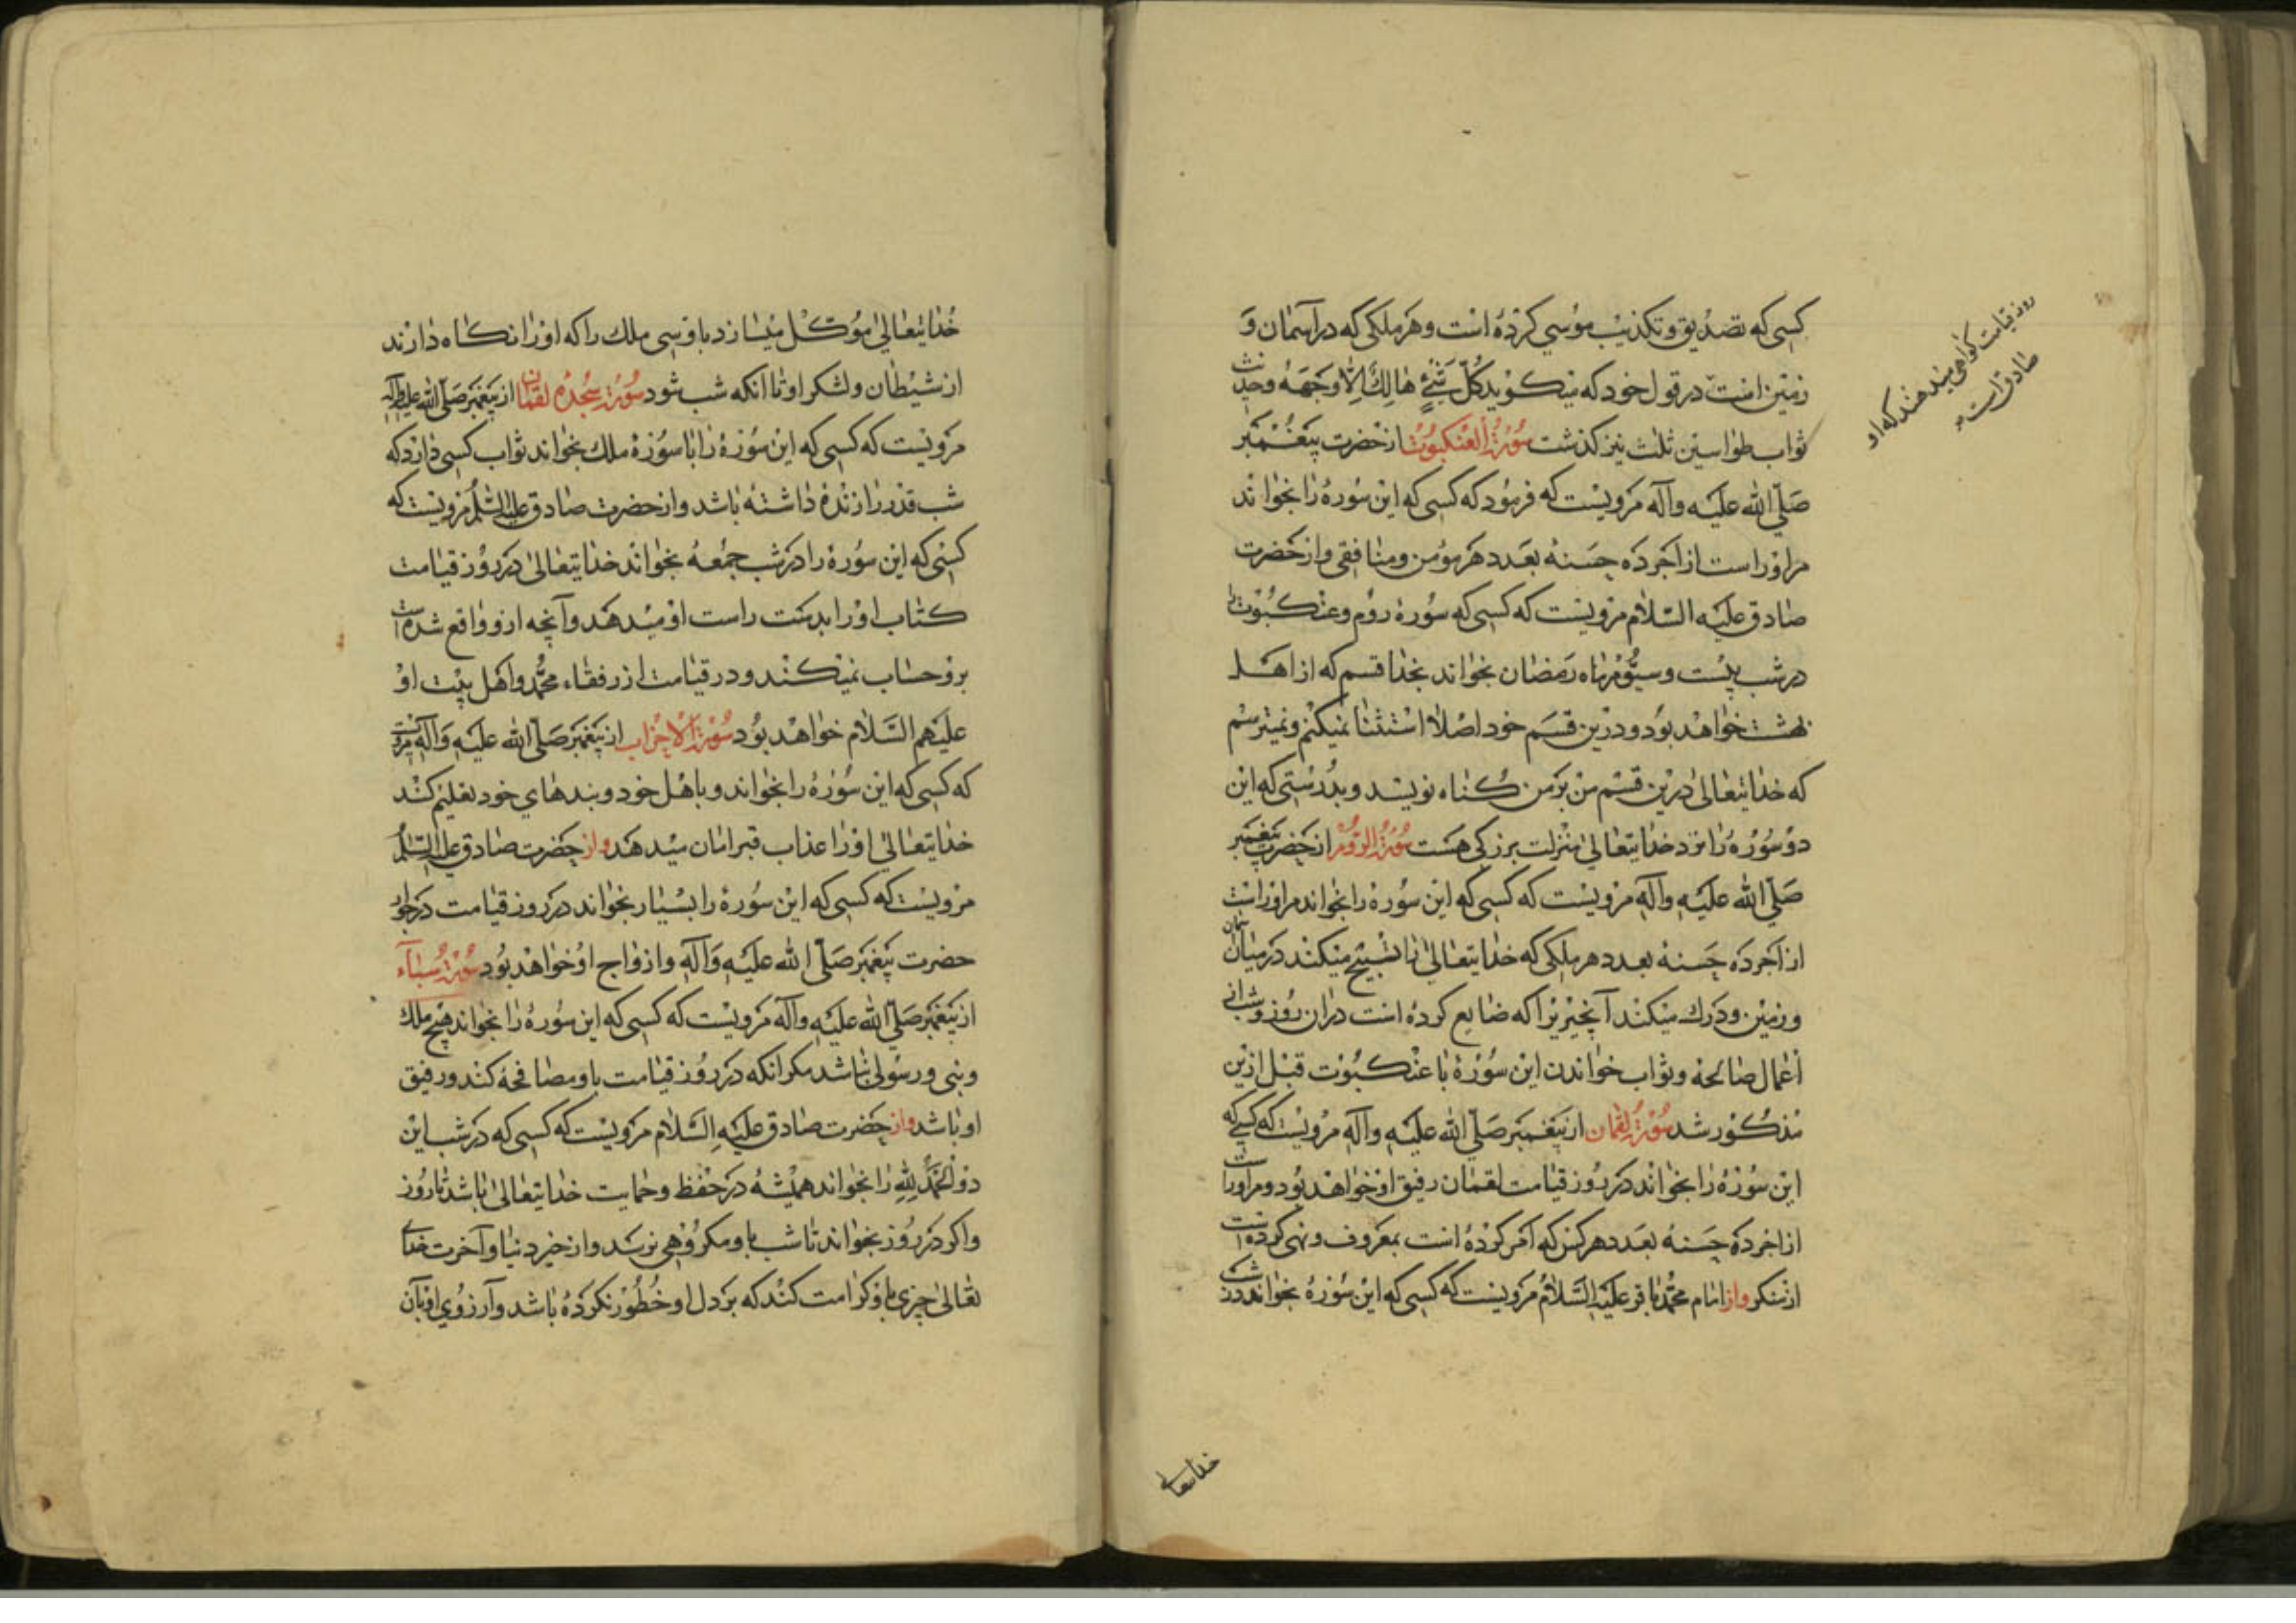 کسی که تصدیق و تکذیب موسی کرده است و هر ملکی که در آسمان و
زمین است در قول خود که میکوید کل شئ هالك الا وجهه وحدیث
ثواب طواسین ثلث نیز کذشت سورة العنکبوت از حضرت پیغمبر
صلی الله علیه وآله مرویست که فرمود که کسی که این سوره را بخواند
مر او راست از اجر ده حسنه بعدد هر مؤمن و منافقی و از حضرت
صادق علیه السلام مرویست که کسی که سوره روم و عنکبوت را
در شب بیست و سیوم ماه رمضان بخواند بخدا قسم که از اهل
بهشت خواهد بود و درین قسم خود اصلا استثنا نمیکنم و نمیترسم
که خدایتعالی درین قسم من بر من کناه نویسد و بدرستی که این
دو سوره را نزد خدایتعالی منزلت بزرکی هست سورة الروم از حضرت پیغمبر
صلی الله علیه وآله مرویست که کسی که این سوره را بخواند مر او راست
از اجر ده حسنه بعدد هر ملکی که خدایتعالی را تسبیح میکند در میان آسمان
و زمین و درك میکند آنچیزیرا که ضایع کرده است در آن روز و شب از
اعمال صالحه و ثواب خواندن این سوره با عنکبوت قبل ازین
مذکور شد سورة لقمان از پیغمبر صلی الله علیه وآله مرویست که کسی که
این سوره را بخواند در روز قیامت لقمان رفیق او خواهد بود و مر او راست
از اجر ده حسنه بعدد هر کس که امر کرده است بمعروف و نهی کرده است
از منکر و از امام محمد باقر علیه السلام مرویست که کسی که این سوره بخواند در شب
روز قیامت کواهی میدهند که او
صادق است
خدایتعالی
خدایتعالی مؤکل میسازد باو سی ملك را که او را نکاه دارند
از شیطان و لشکر او تا آنکه شب شود سورة سجده لقمان از پیغمبر صلی الله علیه وآله
مرویست که کسی که این سوره را با سوره ملك بخواند ثواب کسی دارد که
شب قدر را زنده داشته باشد و از حضرت صادق علیه السلام مرویست که
کسی که این سوره را در شب جمعه بخواند خدایتعالی در روز قیامت
کتاب او را بدست راست او میدهد و آنچه ازو واقع شده است
برو حساب نمیکند و در قیامت از رفقاء محمد و اهل بیت او
علیهم السلام خواهد بود سورة الاحزاب از پیغمبر صلی الله علیه وآله مرویست
که کسی که این سوره را بخواند و باهل خود و بندهای خود تعلیم کند
خدایتعالی او را عذاب قبر امان میدهد و از حضرت صادق علیه السلام
مرویست که کسی که این سوره را بسیار بخواند در روز قیامت در جوار
حضرت پیغمبر صلی الله علیه وآله و ازواج او خواهد بود سورة سباء
از پیغمبر صلی الله علیه وآله مرویست که کسی که این سوره را بخواند هیچ ملك
و نبی و رسولی نباشد مکر انکه در روز قیامت باو مصافحه کند و رفیق
او باشد و از حضرت صادق علیه السلام مرویست که کسی که در شب این
دو الحمد لله را بخواند همیشه در حفظ و حمایت خدایتعالی باشد تا روز
و اکر در روز بخواند تا شب باو مکروهی نرسد و از خیر دنیا و آخرت خدای
تعالی چیزی باو کرامت کند که بر دل او خطور نکرده باشد و آرزوی او بآن